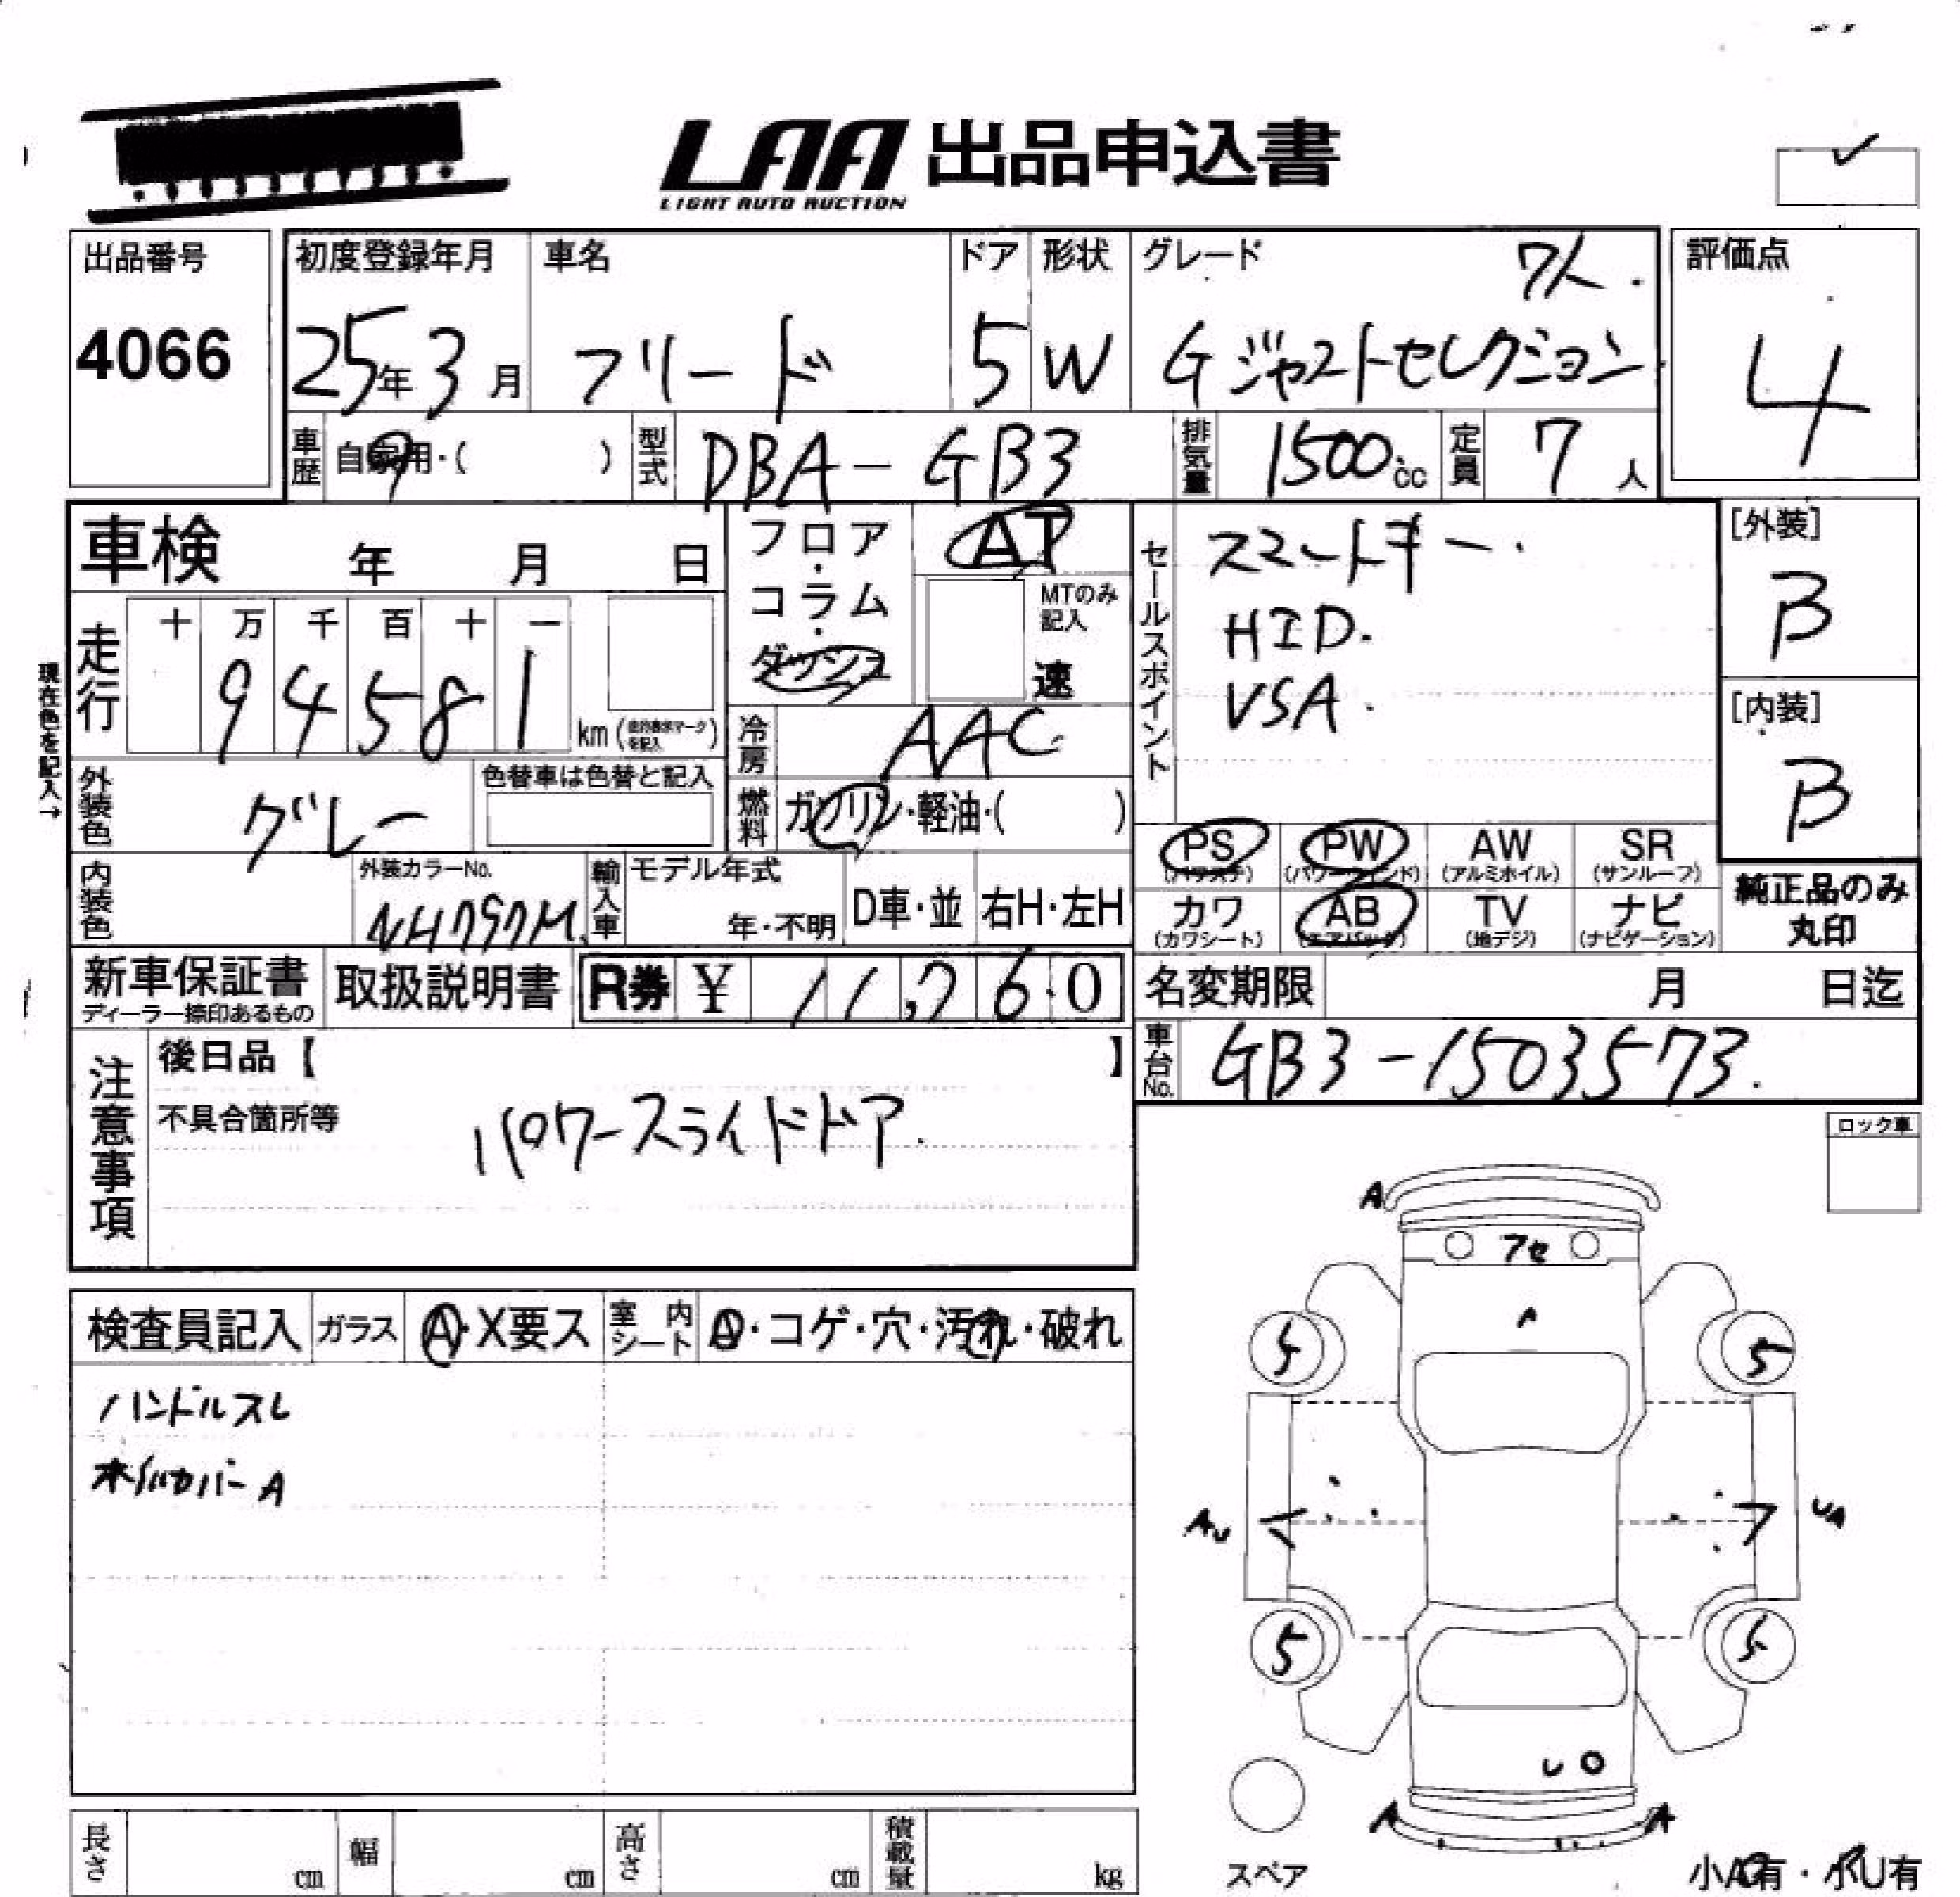 LAA 出品申込書
LIGHT AUTO AUCTION
出品番号
4066
初度登録年月
25年3月
車名
フリード
ドア
5
形状
W
グレード
7人.
Gジャストセレクション
評価点
4
車歴
自家用・( )
型式
DBA-GB3
排気量
1500cc
定員
7人
車検 年 月 日
フロア・コラム・ダッシュ
AT
MTのみ記入
速
セールスポイント
スマートキー.
HID.
VSA.
[外装]
B
[内装]
B
現在色を記入→
走行
十 万 千 百 十 一
9 4 5 8 1
km
冷房
AAC
外装色
グレー
色替車は色替と記入
燃料
ガソリン・軽油・( )
PS PW AW SR
(パワステ) (パワーウインド) (アルミホイル) (サンルーフ)
カワ AB TV ナビ
(カワシート) (エアバック) (地デジ) (ナビゲーション)
純正品のみ
丸印
内装色
外装カラーNo.
NH797M.
輸入車
モデル年式
年・不明
D車・並
右H・左H
新車保証書
ディーラー捺印あるもの
取扱説明書
R券 ¥ 11,760
名変期限 月 日迄
車台No.
GB3-1503573.
注意事項
後日品【 】
不具合箇所等
パワースライドドア.
ロック車
検査員記入
ガラス
A・X要ス
室内シート
・コゲ・穴・汚れ・破れ
ハンドルスレ
ホイルカバーA
A
フセ
A
5 5
AU
UA
5 5
U
A A
スペア
小A有・小U有
長さ cm
幅 cm
高さ cm
積載量 kg